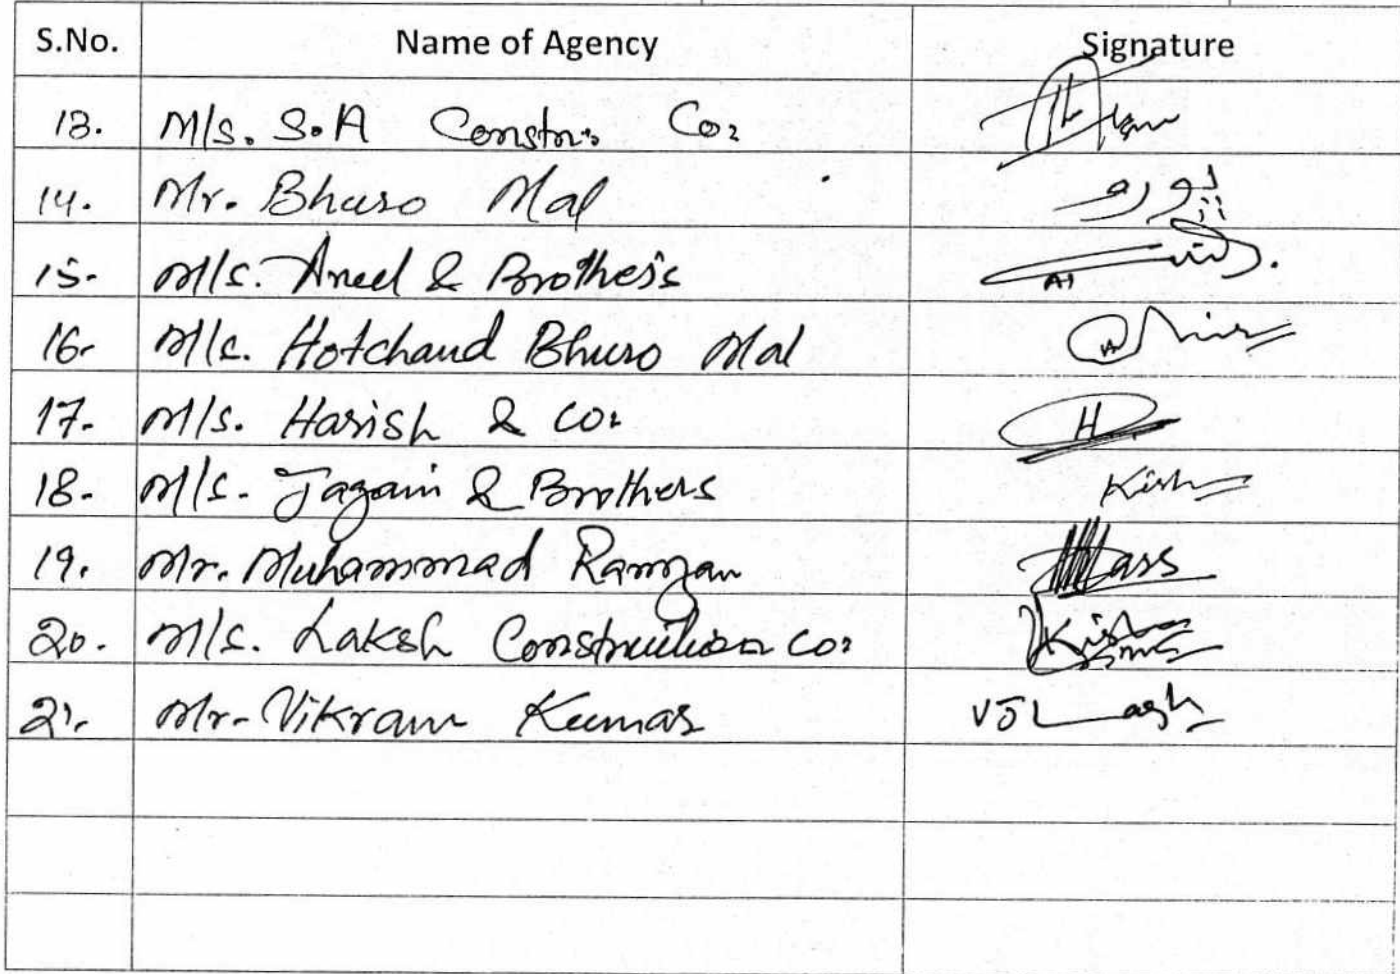 S.No. Name of Agency Signature
13. M/s. S.A Constn: Co:
14. Mr. Bhuro Mal
15. M/s. Aneel & Brothers
16. M/s. Hotchand Bhuro Mal
17. M/s. Harish & Co: H
18. M/s. & Brothers
19. Mr. Muhammad Ramzan
20. M/s. Laksh Construction Co:
21. Mr. Vikram Kumar